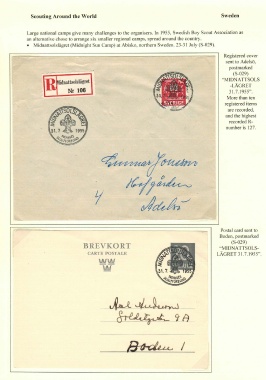 Scouting Around the World Sweden
Large national camps give many challenges to the organisers. In 1935, Swedish Boy Scout Association as
an alternative chose to arrange six smaller regional camps, spread around the country.
• Midnattssolslägret (Midnight Sun Camp) at Abisko, northern Sweden. 23-31 July (S-029)
Registered cover
sent to Adelsö,
postmarked
(S-029)
"MIDNATTSOLS
-LÄGRET
31.7.1935".
More than ten
registered items
are recorded,
and the highest
recorded R-
number is 127.
R Midnattssolslägret
Nr 106
SVERIGE
MIDNATTSOLSLÄGRET
31.7 1935
Gunnar Jonsson
Hofgården
4 Adelsö
Postal card sent to
Boden, postmarked
(S-029)
"MIDNATTSOLS-
LÄGRET 31.7.1935".
BREVKORT
CARTE POSTALE
31.7 1935
Axel Anderson
9A
Boden 1